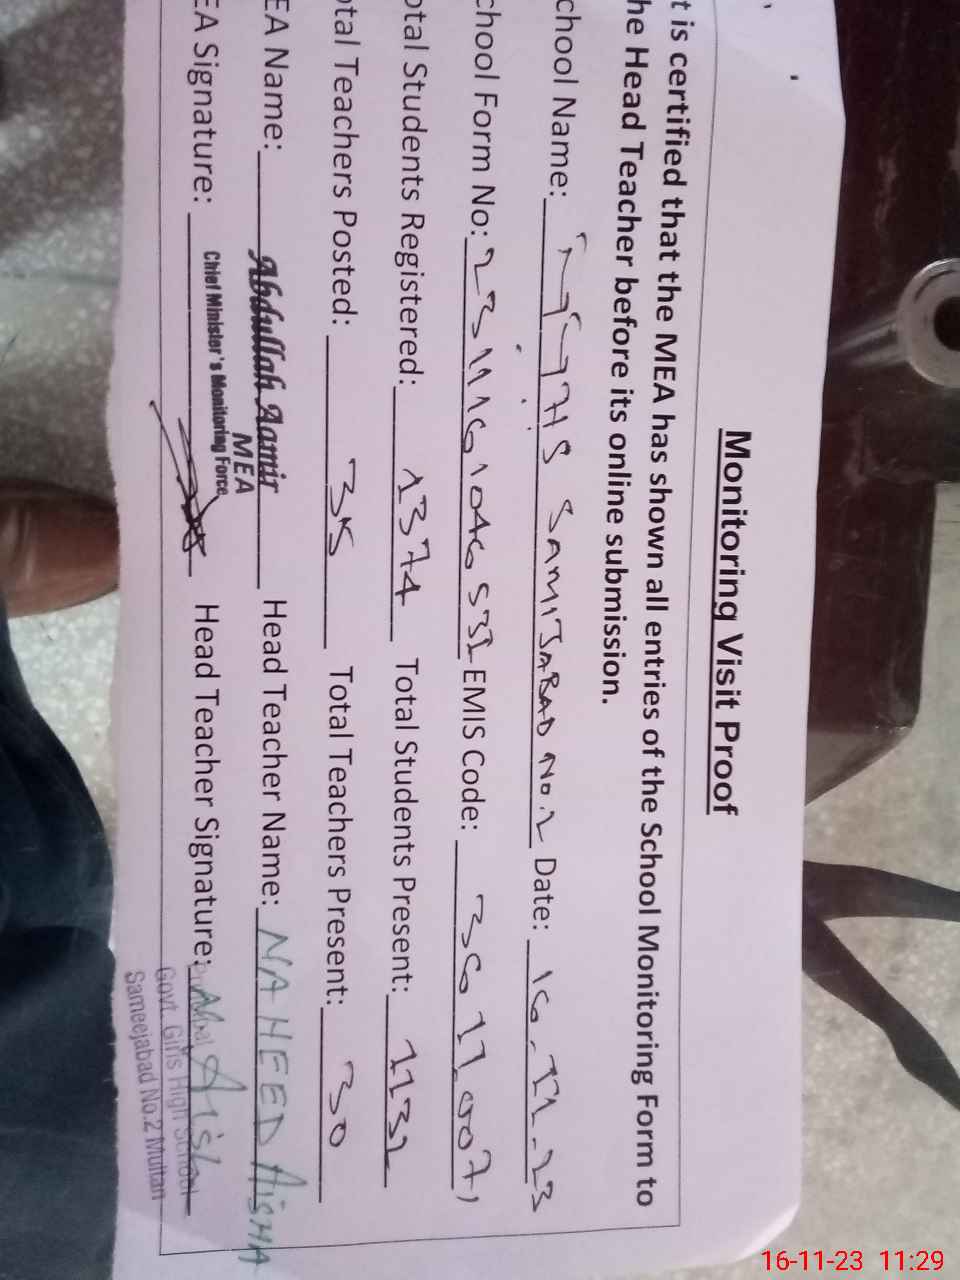 Monitoring Visit Proof
t is certified that the MEA has shown all entries of the School Monitoring Form to
he Head Teacher before its online submission.
chool Name: SAMIJABAD NO.2 Date: 16.11.23
chool Form No: EMIS Code:
otal Students Registered: 1374 Total Students Present: 1132
otal Teachers Posted: 35 Total Teachers Present: 30
EA Name: Abdullah Aamir Head Teacher Name: NAHEED AISHA
MEA
Chief Minister's Monitoring Force
EA Signature: Head Teacher Signature: Aisha
Principal
Govt. Girls High School
Sameejabad No.2 Multan
16-11-23 11:29